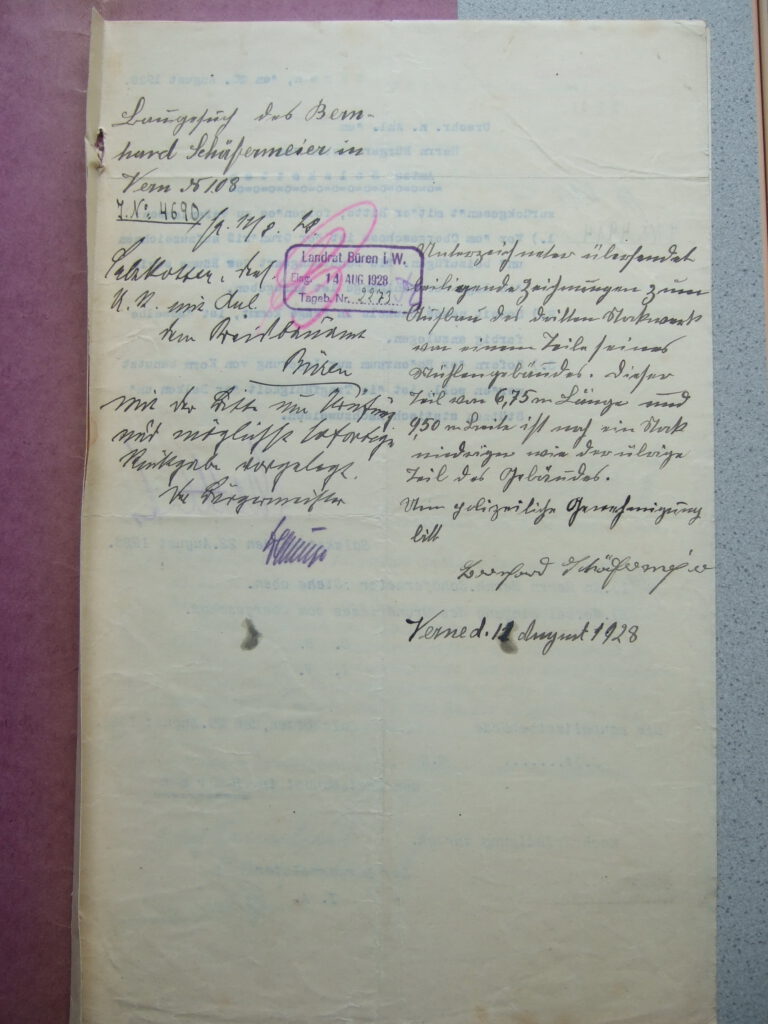 Baugesuch des Bern-
hard Schäfermeier in
Vern № 108
J.N: 4690
Landrat Büren i.W.
Eing. 14 AUG 1928
Tageb. Nr. 2273
Salzkotten, des
U. R. mit Anl
dem Kreisbauamt
Büren
mit der Bitte um Prüfung
und möglichst sofortige
Rückgabe vorgelegt.
Der Bürgermeister
Unterzeichneter übersendet
beiligende Zeichnungen zum
Aufbau des dritten Stockwerk
von einem Teile seines
Mühlengebäudes. Dieser
Teil von 6,75 m Länge und
9,50 m Breite ist noch ein Stock
niedriger wie der übrige
Teil des Gebäudes.
Um polizeiliche Genehmigung
bitt
Bernhard Schäfermeier
Verne d. 11 August 1928